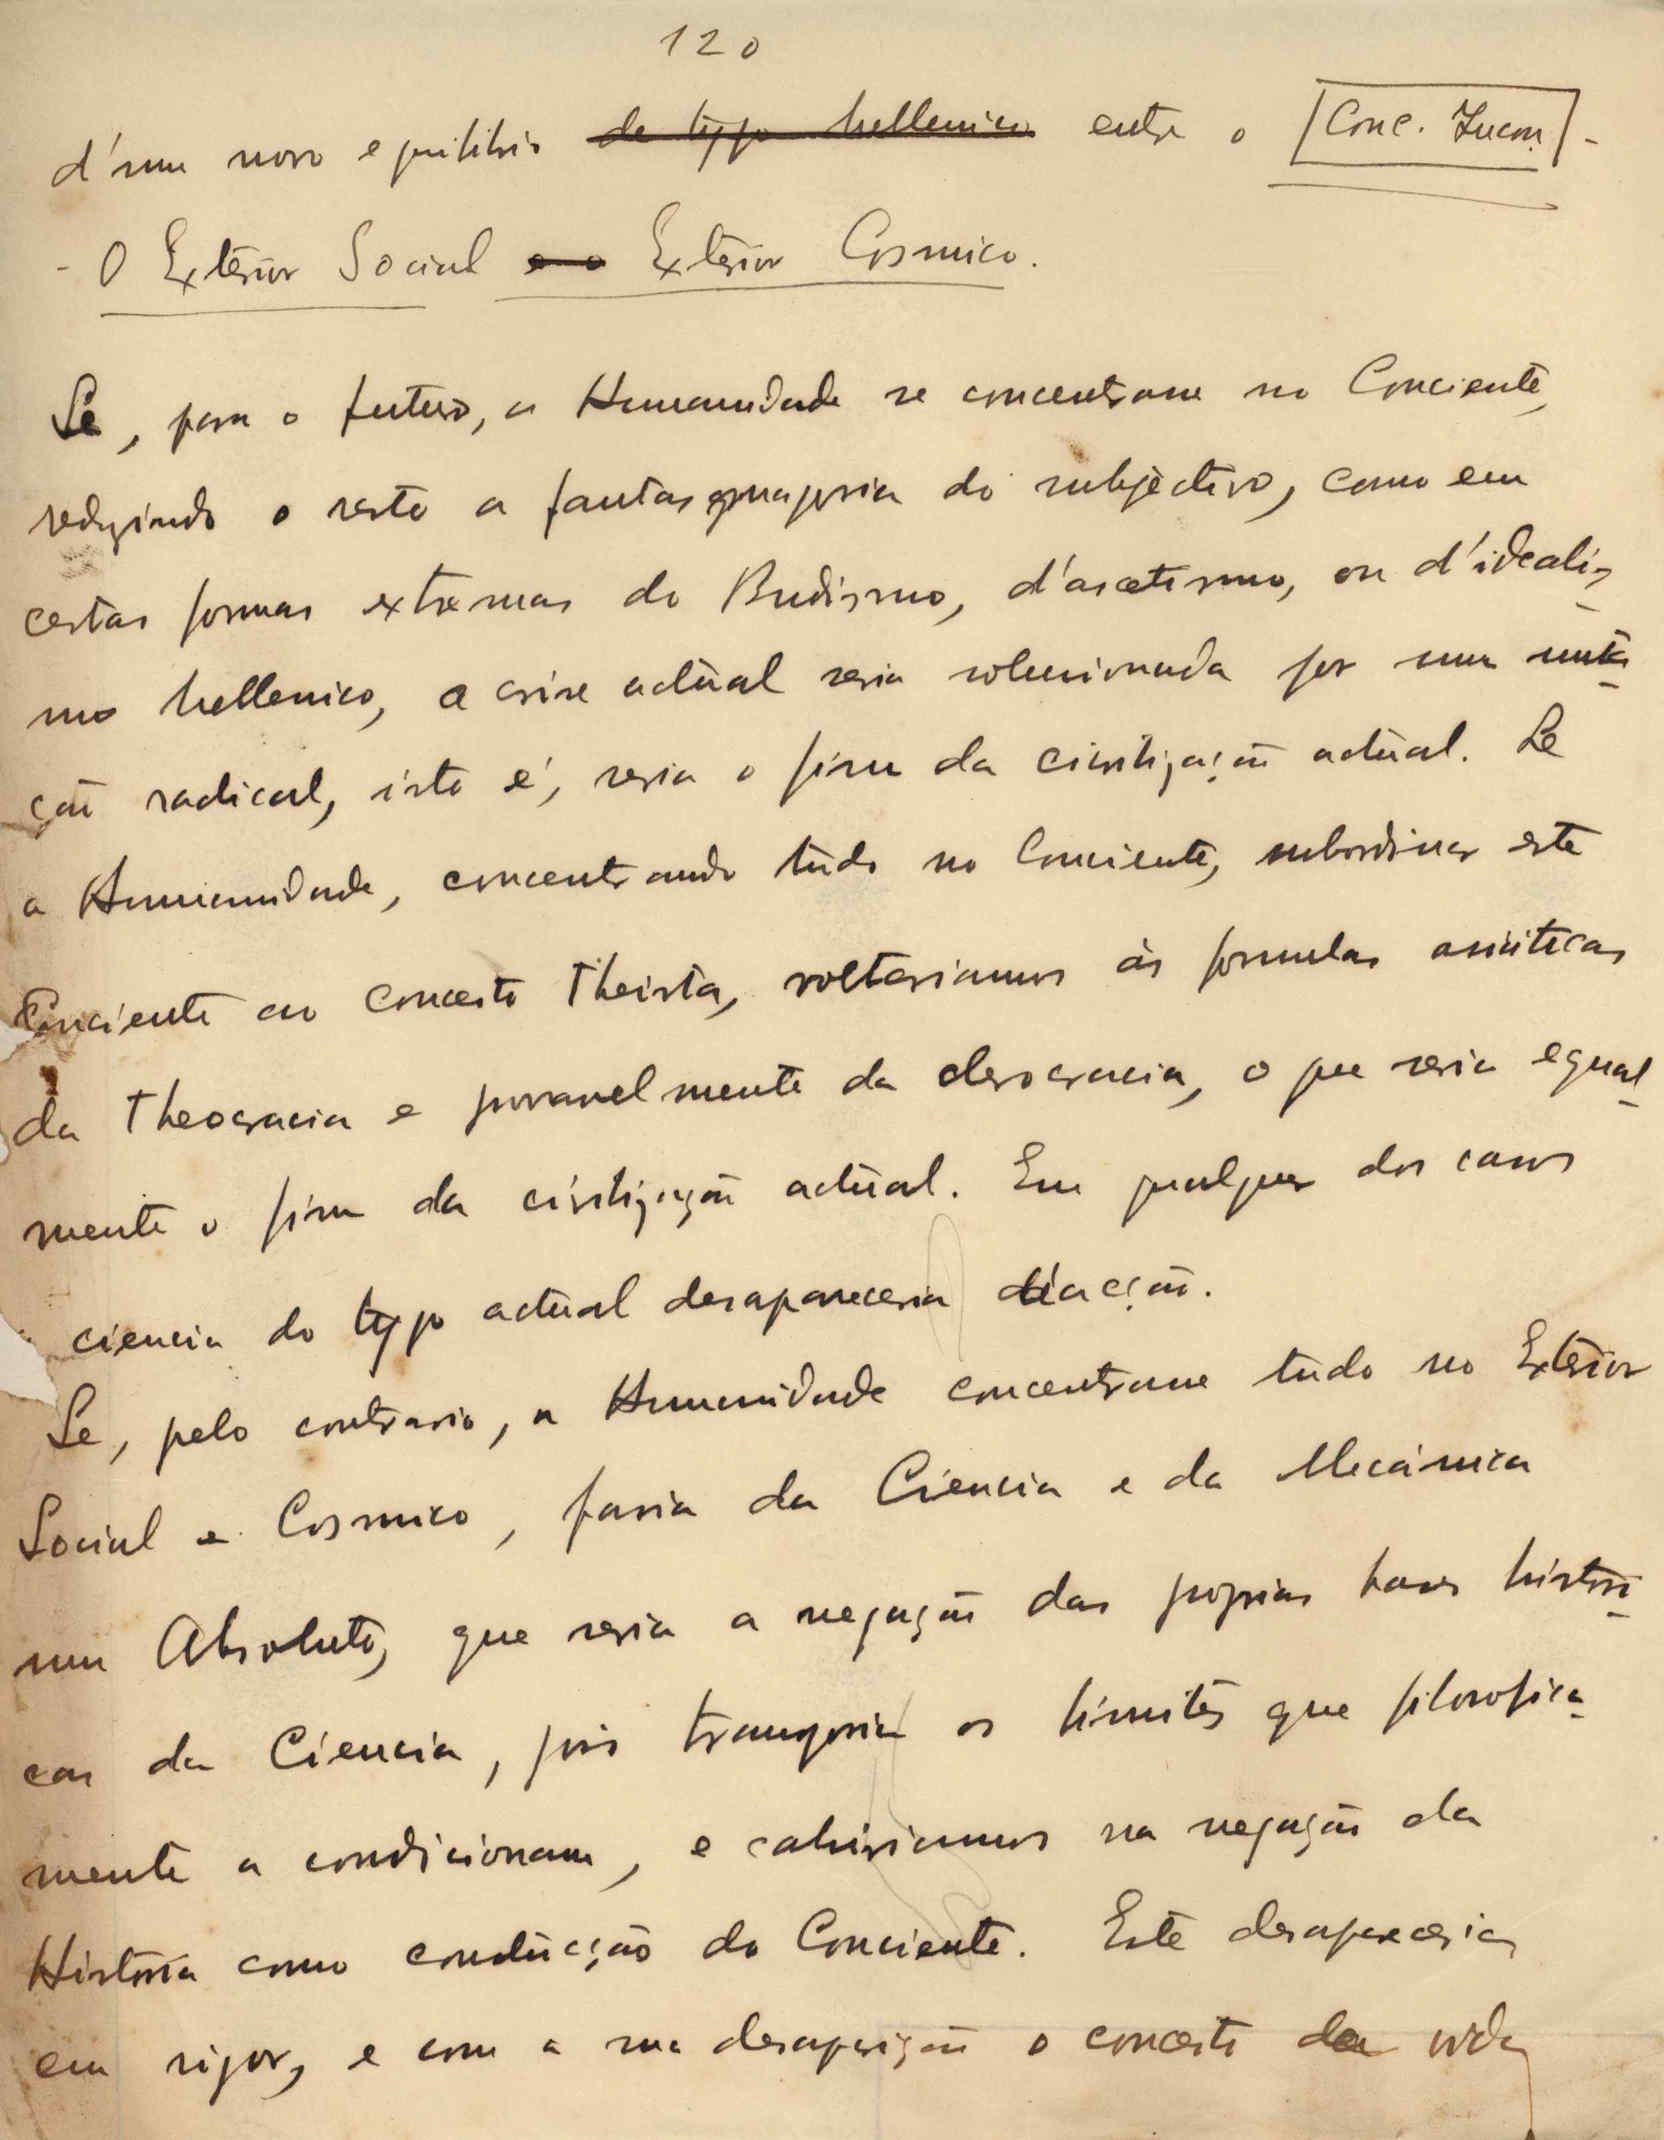 120
d'um novo equilibrio de typo hellenico entre o Conc. Incon. -
- O Exterior Social e o Exterior Cosmico.
Se, para o futuro, a Humanidade se concentrasse no Conciente,
reduzindo o resto a fantasmagoria do subjectivo, como em
certas formas extremas do Budismo, d'ascetismo, ou d'idealis-
mo hellenico, a crise actual seria solucionada por uma muta-
ção radical, isto é, seria o fim da civilização actual. Se
a Humanidade, concentrando tudo no Conciente, subordinar este
Conciente ao conceito Theista, voltariamos ás formulas asiáticas
da Theocracia e provavelmente da clerocracia, o que seria egual-
mente o fim da civilização actual. Em qualquer dos casos
ciencia do typo actual desapareceria d'acção.
Se, pelo contrario, a Humanidade concentrasse tudo no Exterior
Social e Cosmico, faria da Ciencia e da Mecánica
um Absoluto, que seria a negação das proprias bases histori-
cas da Ciencia, pois transporia os limites que filosofica-
mente a condicionam, e cahiriamos na negação da
História como condução do Conciente. Este desapareceria,
em rigor, e com a sua desaparição o conceito da vida